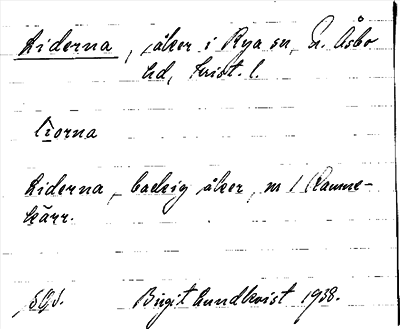 Liderna, åker i Rya sn, N. Åsbo
hd, Krist. l.
liorna
Liderna, backig åker, nr 1 Ramme-
kärr.
Birgit Lundkvist 1938.